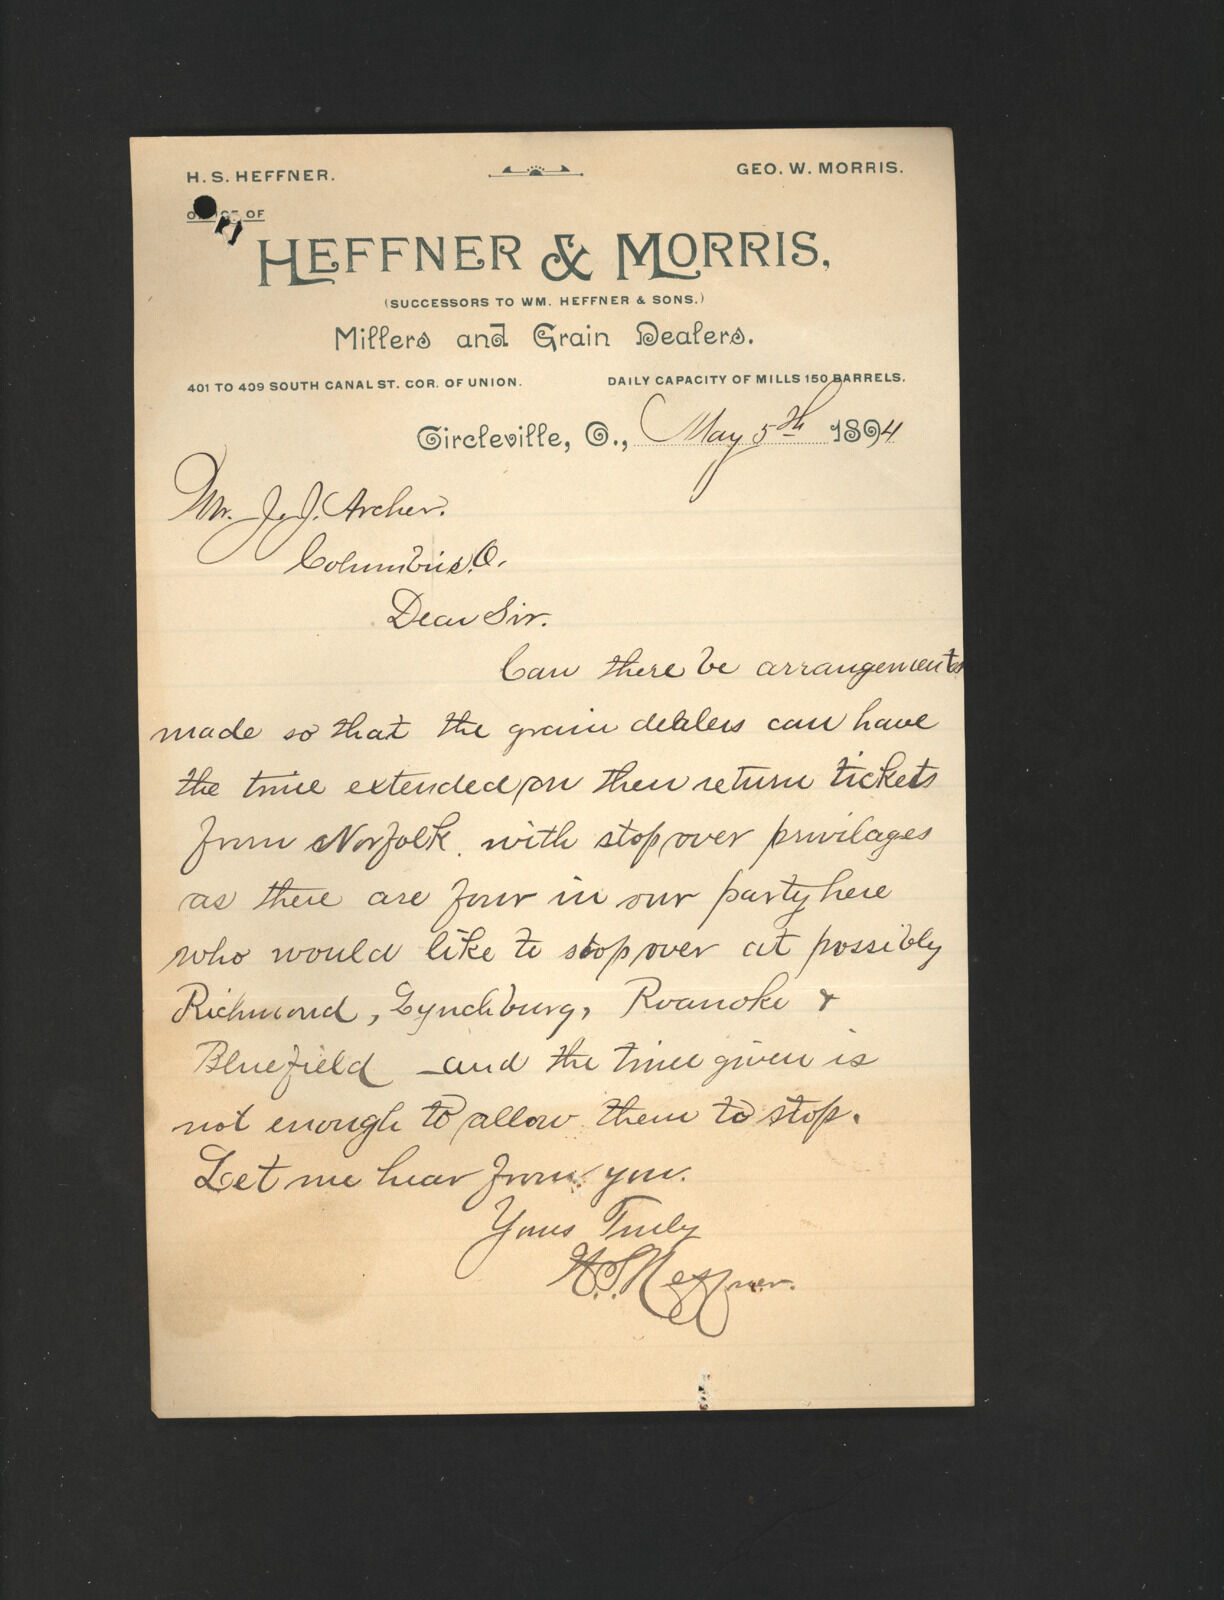 H. S. HEFFNER.
GEO. W. MORRIS.
OFFICE OF
HEFFNER & MORRIS,
(SUCCESSORS TO WM. HEFFNER & SONS.)
Millers and Grain Dealers.
401 TO 409 SOUTH CANAL ST. COR. OF UNION.
DAILY CAPACITY OF MILLS 150 BARRELS.
Circleville, O., May 5th 1894
Mr. J. J. Archer.
Columbus. O.
Dear Sir.
Can there be arrangements
made so that the grain dealers can have
the time extended on their return tickets
from Norfolk. with stop over privilages
as there are four in our party here
who would like to stop over at possibly
Richmond, Lynchburg, Roanoke &
Bluefield and the time given is
not enough to allow them to stop.
Let me hear from you.
Yours Truly
H. S. Heffner.